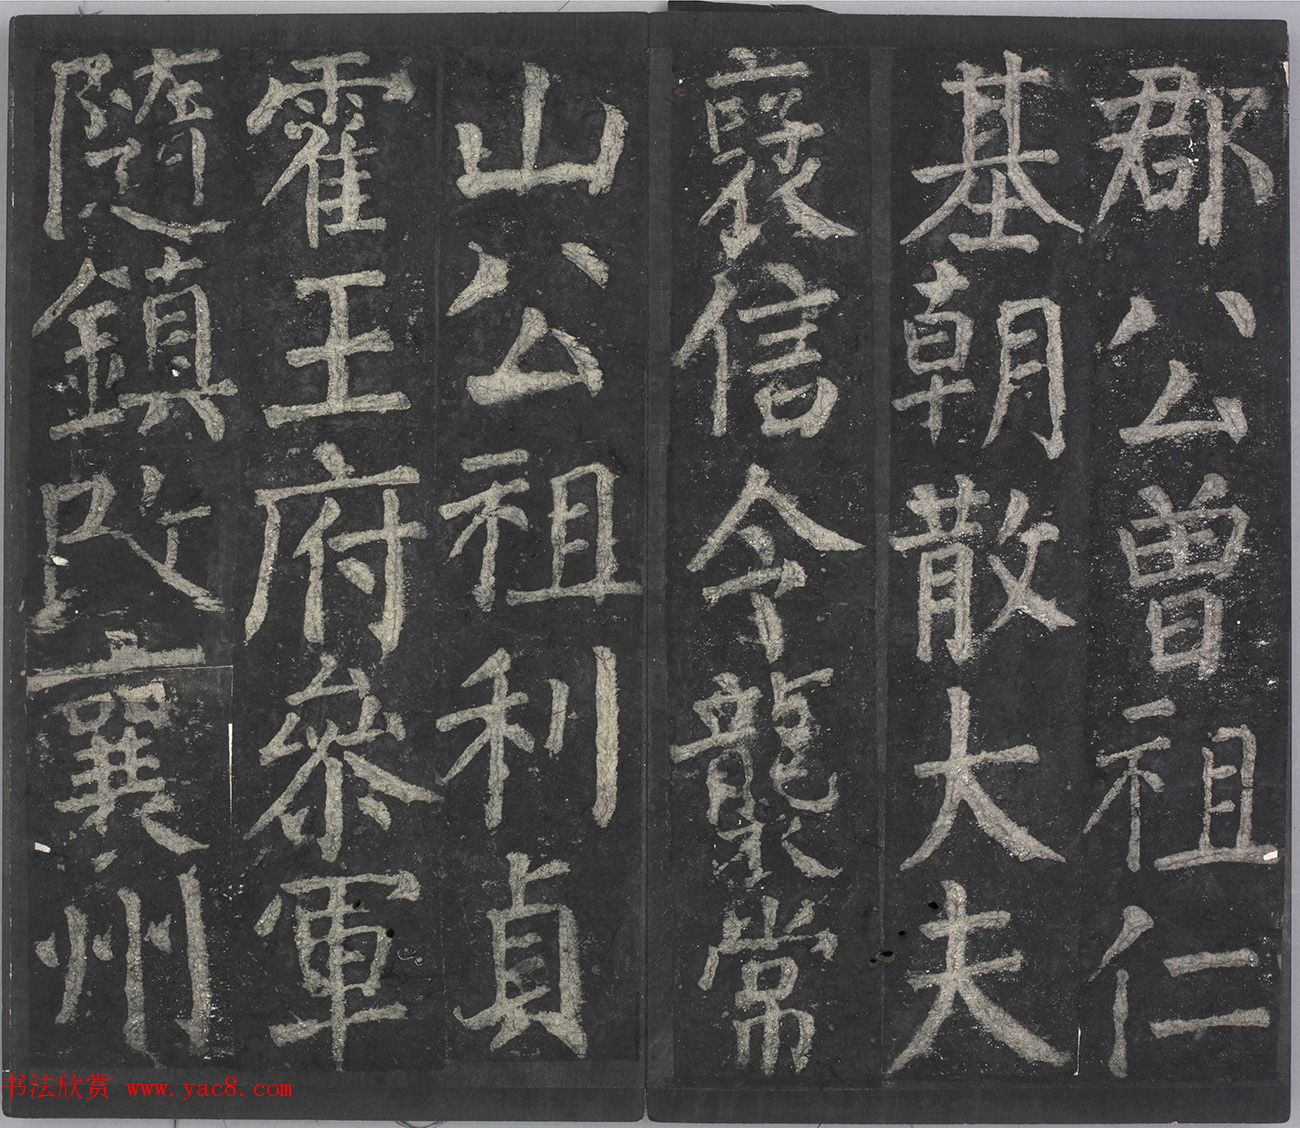 郡公曾祖仁
基朝散大夫
褒信令襲常
山公祖利貞
霍王府叅軍
隨鎮改襄州
书法欣赏 www.yac8.com